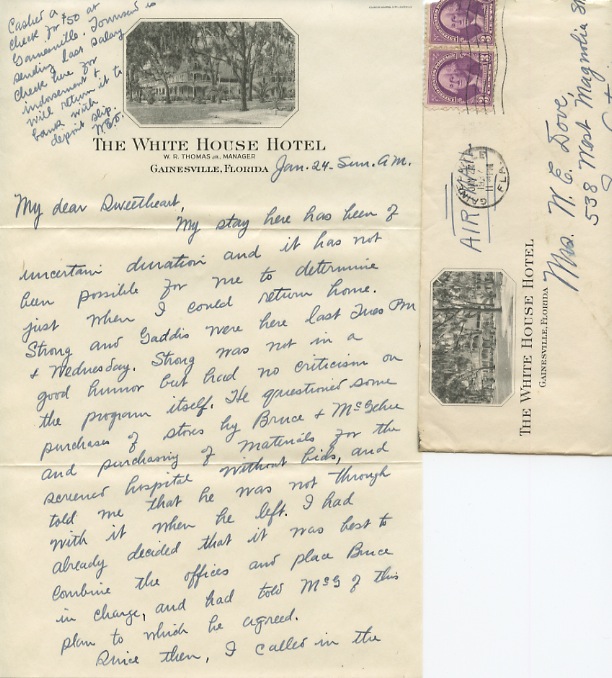 Cashed a
check for $50 at
Gainesville. Townsend is
sending last salary
check here for
indorsement &
will return it to
bank with
deposit slip.
W.E.D.
THE WHITE HOUSE HOTEL
W. R. THOMAS JR. MANAGER
GAINESVILLE, FLORIDA
Jan. 24 - Sun. A.M.
My dear Sweetheart,
My stay here has been of
uncertain duration and it has not
been possible for me to determine
just when I could return home.
Strong and Gaddis were here last Tues Pm
& Wednesday. Strong was not in a
good humor but had no criticism on
the program itself. He questioned some
purchases of stores by Bruce & McGehee
and purchasing of materials for the
screened hospital without bids, and
told me that he was not through
with it when he left. I had
already decided that it was best to
combine the offices and place Bruce
in charge, and had told McG of this
plan to which he agreed.
Since then, I called in the
AIR MAIL
GAINESVILLE
FLA.
Mrs. W. E. Dove,
538 West Magnolia
THE WHITE HOUSE HOTEL
GAINESVILLE, FLORIDA